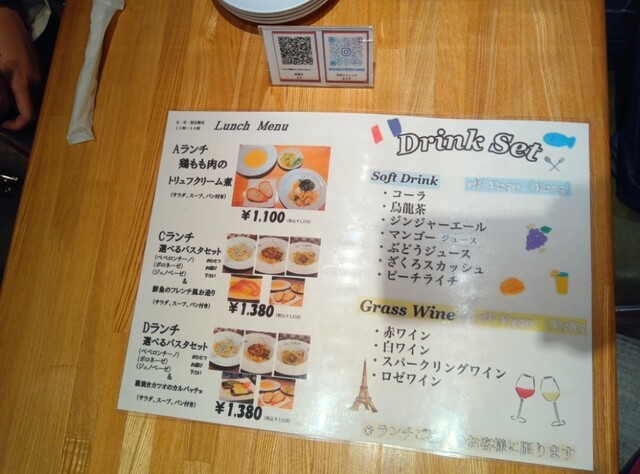 Lunch Menu
Aランチ
鶏もも肉の
トリュフクリーム煮
(サラダ、スープ、パン付き)
¥1.100
Cランチ
選べるパスタセット
(ペペロンチーノ)
(ボロネーゼ)
(ジェノベーゼ)
おひとつ
お選び
下さい
&
鮮魚のフレンチ風お造り
(サラダ、スープ、パン付き)
¥1.380
Dランチ
選べるパスタセット
(ペペロンチーノ)
(ボロネーゼ)
(ジェノベーゼ)
おひとつ
お選び
下さい
&
藁焼きカツオのカルパッチョ
(サラダ、スープ、パン付き)
¥1.380
Drink Set
Soft Drink
・コーラ
・烏龍茶
・ジンジャーエール
・マンゴージュース
・ぶどうジュース
・ざくろスカッシュ
・ピーチライチ
Grass Wine
・赤ワイン
・白ワイン
・スパークリングワイン
・ロゼワイン
※ランチご お客様に限ります